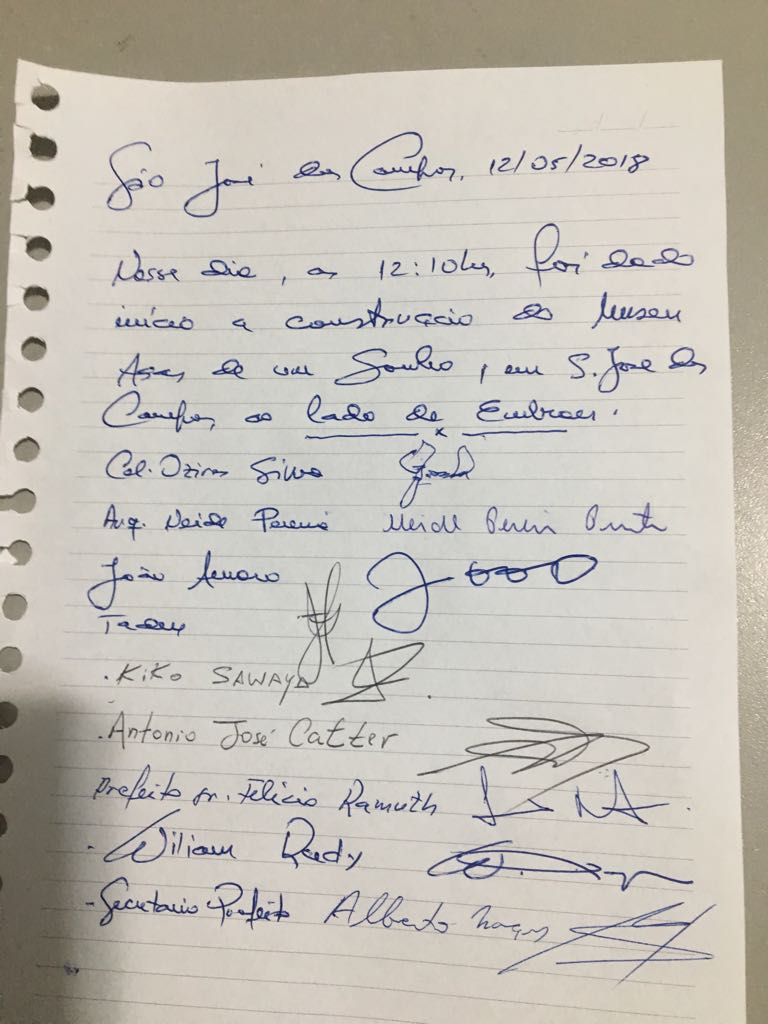 São José dos Campos, 12/05/2018
Nesse dia, as 12:10hs, foi dado
início a construção do Museu
Asas de um Sonho, em S. José dos
Campos ao lado da Embraer.
Cel. Ozires Silva
Arq. Neide Pereira Neide
João Amaro
Tadeu
. KIKO SAWAYA
. Antonio José Catter
Prefeito sr. Felicio Ramuth
- Wiliam Rady
- Secretario Prefeito Alberto